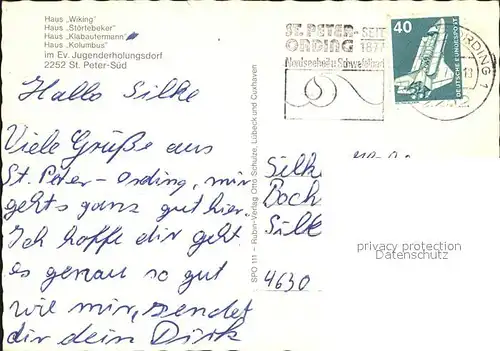 Haus „Wiking"
Haus „Störtebeker"
Haus „Klabautermann"
Haus „Kolumbus"
im Ev. Jugenderholungsdorf
2252 St. Peter-Süd
ST. PETER-
ORDING
SEIT
1877
Nordseeheil- u. Schwefelbad
40
DEUTSCHE BUNDESPOST
ORDING 1
Hallo Silke
Viele Grüße aus
St. Peter-Ording, mir
gehts ganz gut hier.
Ich hoffe dir geht
es genau so gut
wie mir, sendet
dir dein Dirk
SPO 111 – Rubin-Verlag Otto Schulze, Lübeck und Cuxhaven
Silk
Boch
Silk
4630
privacy protection
Datenschutz